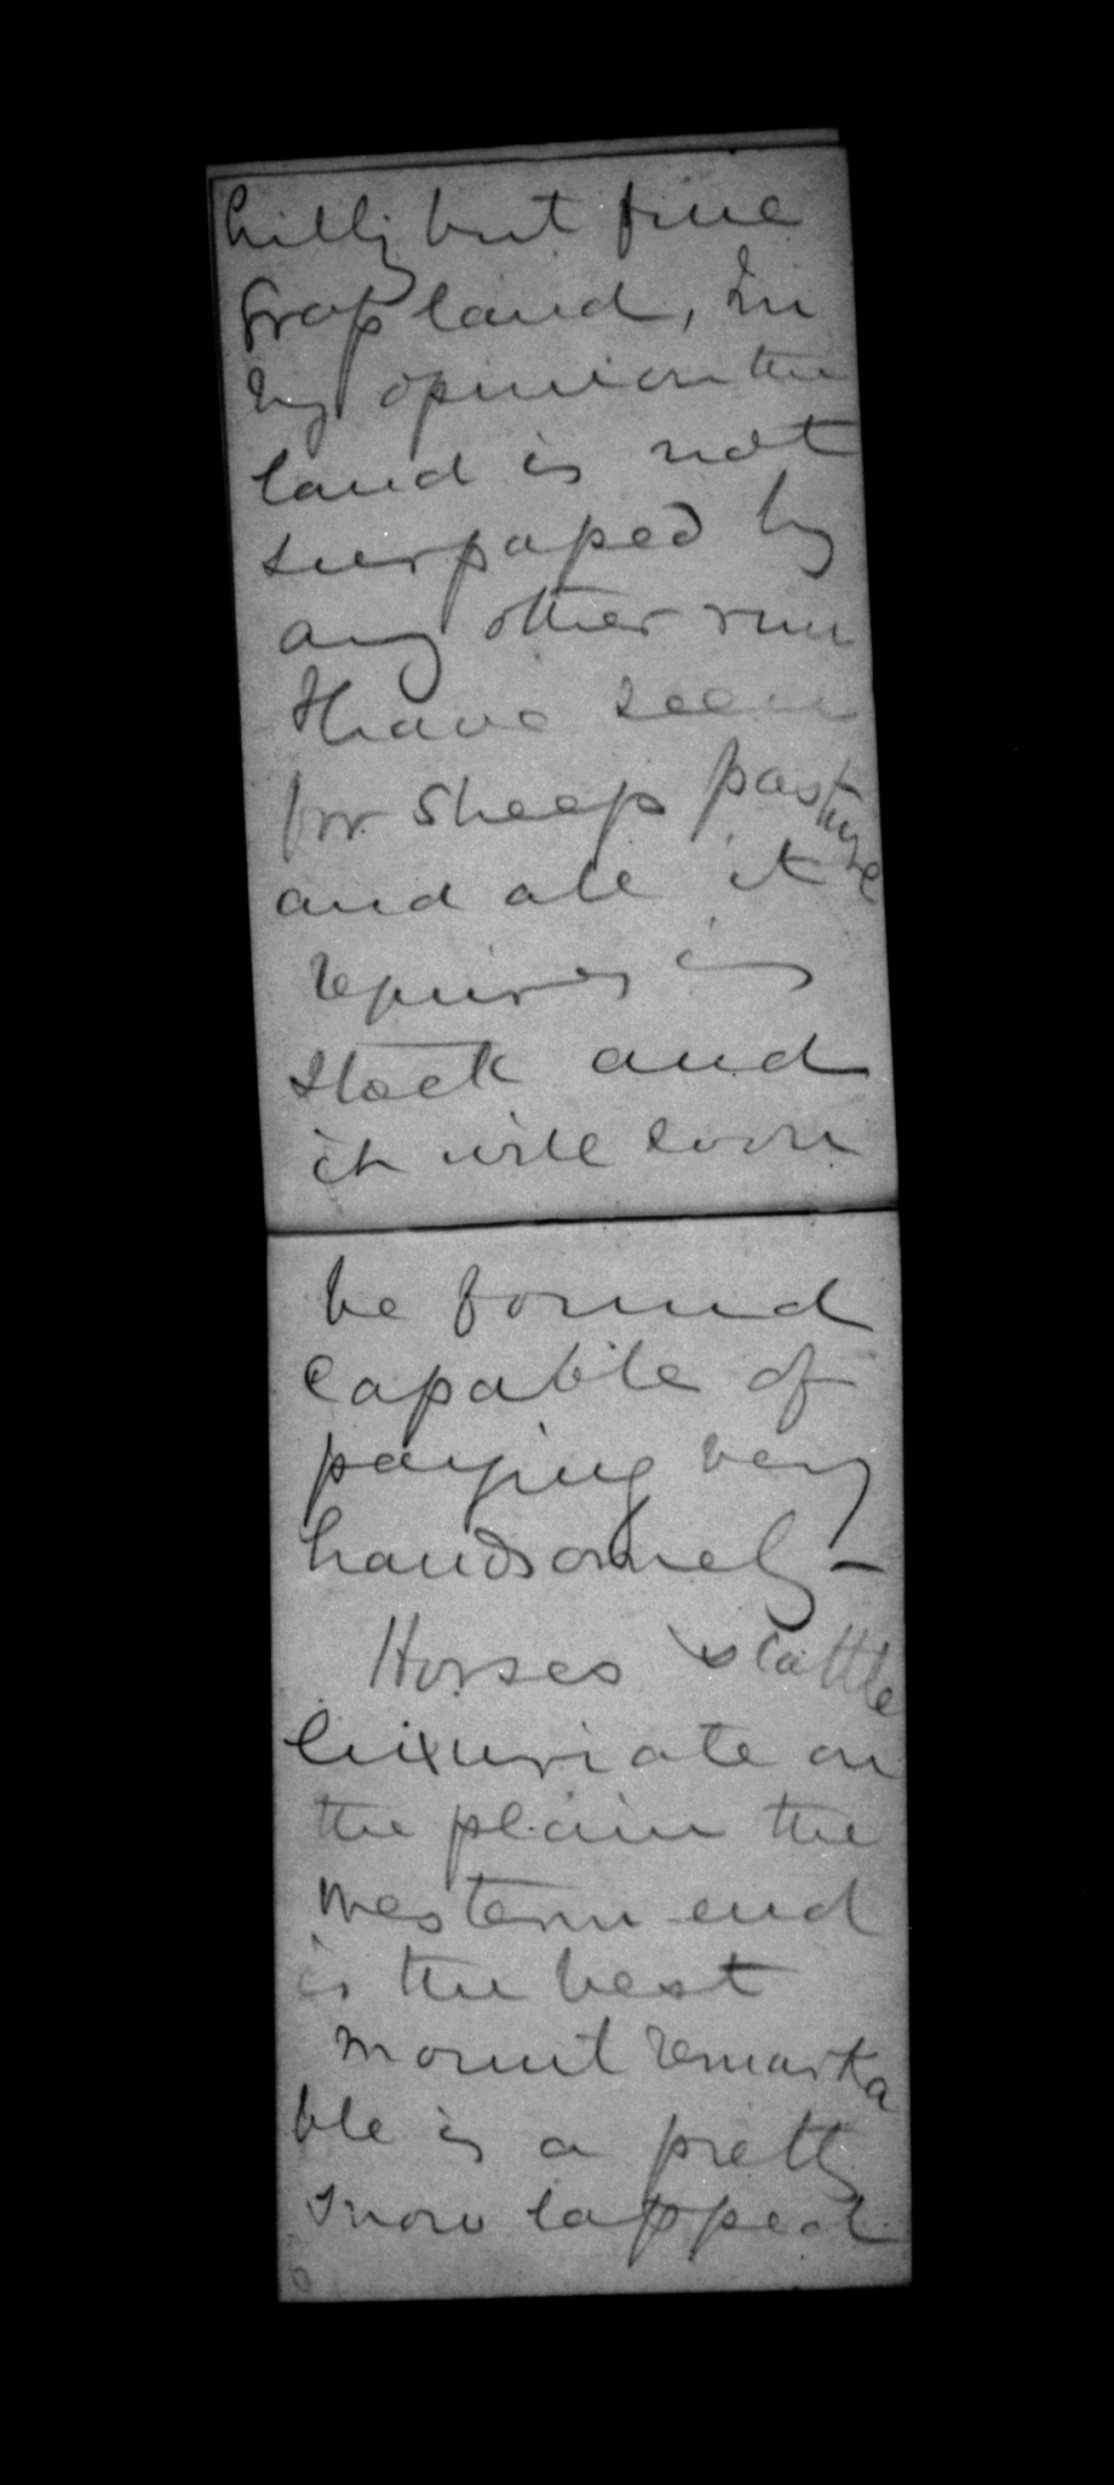 hilly but fine
Grass land, In
my opinion the
land is not
surpassed by
any other run
I have seen
for Sheep pasture
and all it
requires is
stock and
it will soon
be found
capable of
paying very
handsomely —
Horses & Cattle
luxuriate on
the plain the
western end
is the best
Mount Remarka
ble is a pretty
snow capped